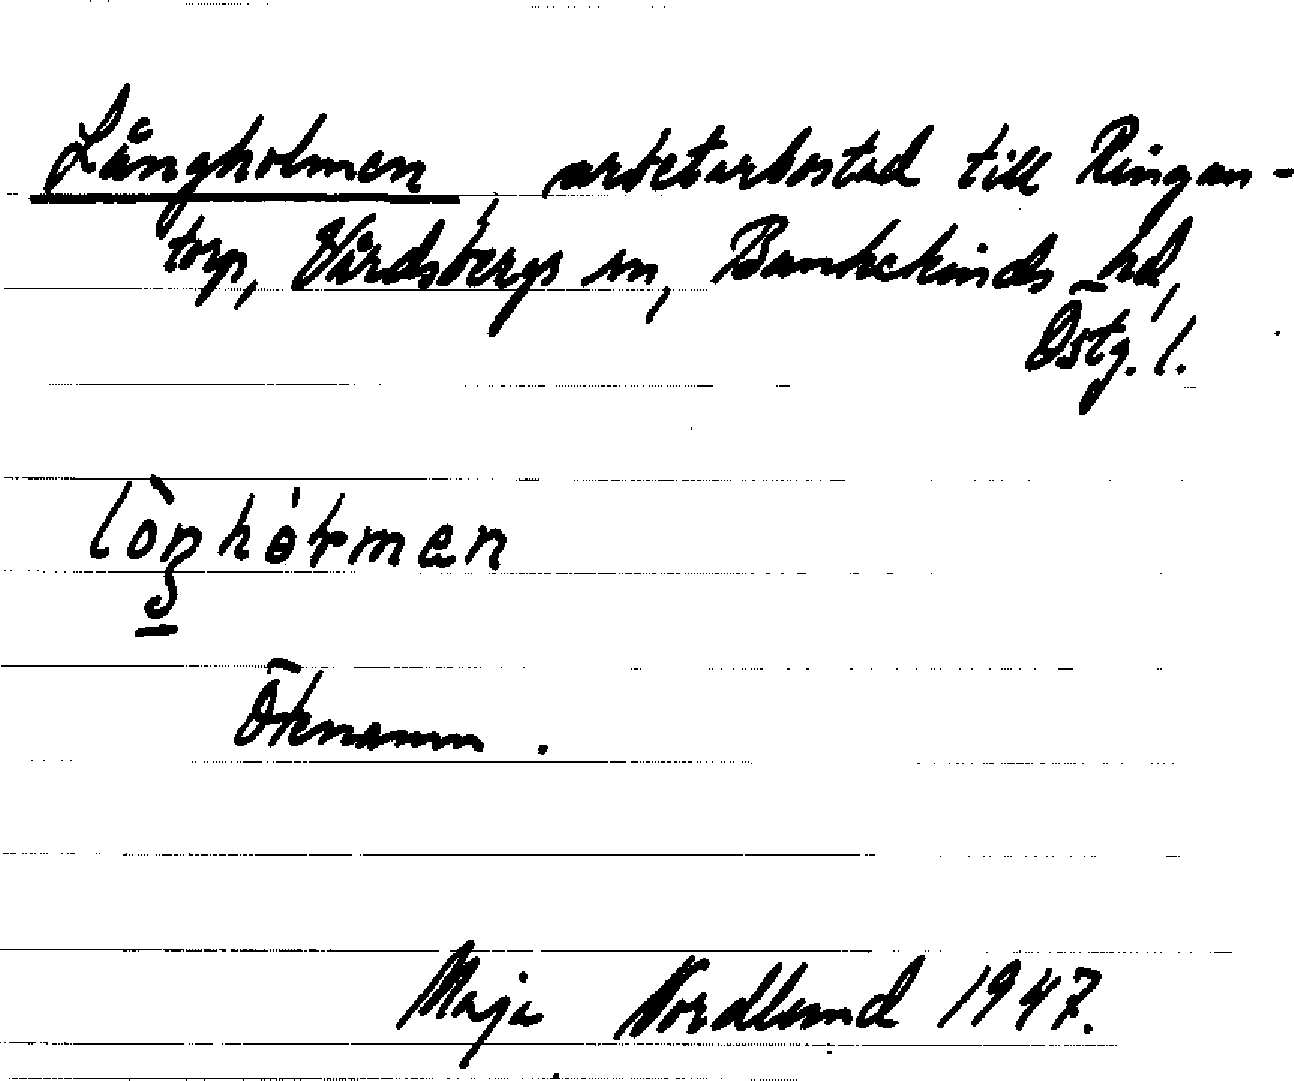 Långholmen, arbetarbostad till Ringan-
torp, Vårdsbergs sn, Bankekinds hd,
Östg. l.
Öknamn.
Maja Nordlund 1947.